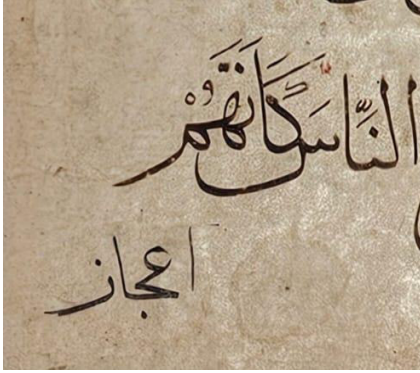 النَّاسَ كَأَنَّهُمْ
اعجاز